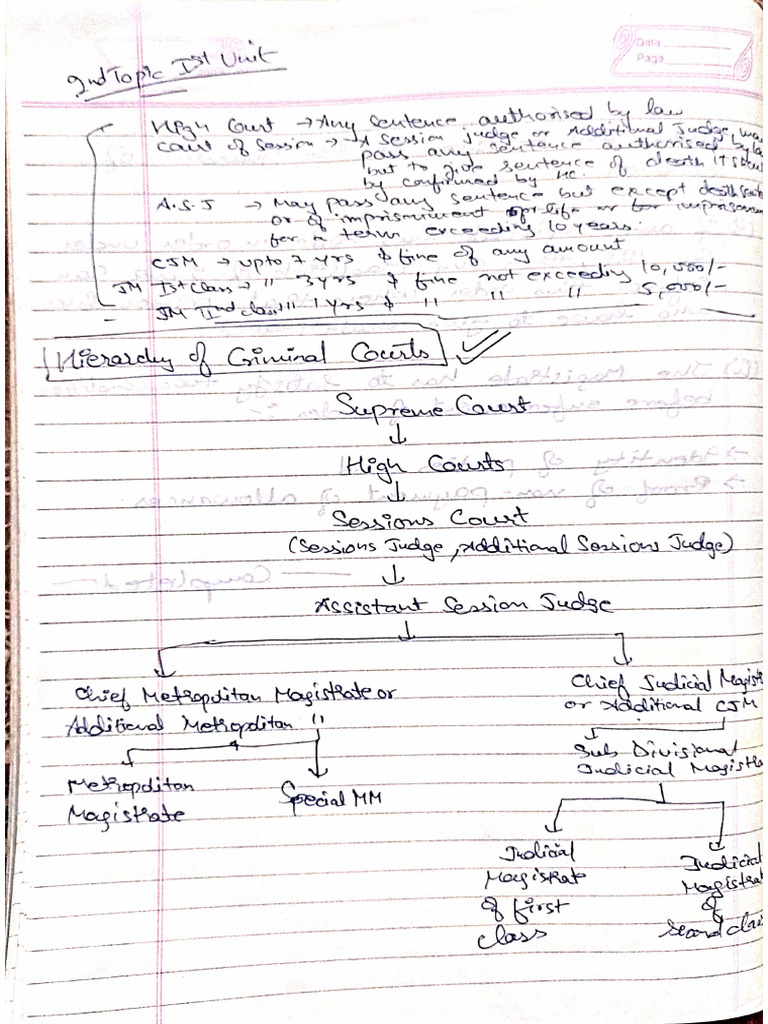 Date
Page
2nd Topic Ist Unit
High Court → Any sentence authorised by law
Court of Session → A Session judge or Additional Judge, may
pass any sentence authorised by law
but to give sentence of death it should
by confirmed by HC.
A.S.J → May pass any sentence but except death
or of imprisonment for life or for
for a term exceeding 10 years.
CJM → upto 7 yrs & fine of any amount
JM Ist class → " 3 yrs & fine not exceeding 10,000/-
JM IInd class " 1 yrs & " " " 5,000/-
Hierarchy of Criminal Courts
Supreme Court
↓
High Courts
↓
Sessions Court
(Sessions Judge, Additional Sessions Judge)
↓
Assistant Session Judge
Chief Metropolitan Magistrate or
Additional Metropolitan "
Chief Judicial
or Additional CJM
Sub Divisional
Judicial
Metropolitan
Magistrate
Special MM
Judicial
Magistrate
of first
class
Judicial
of
Second